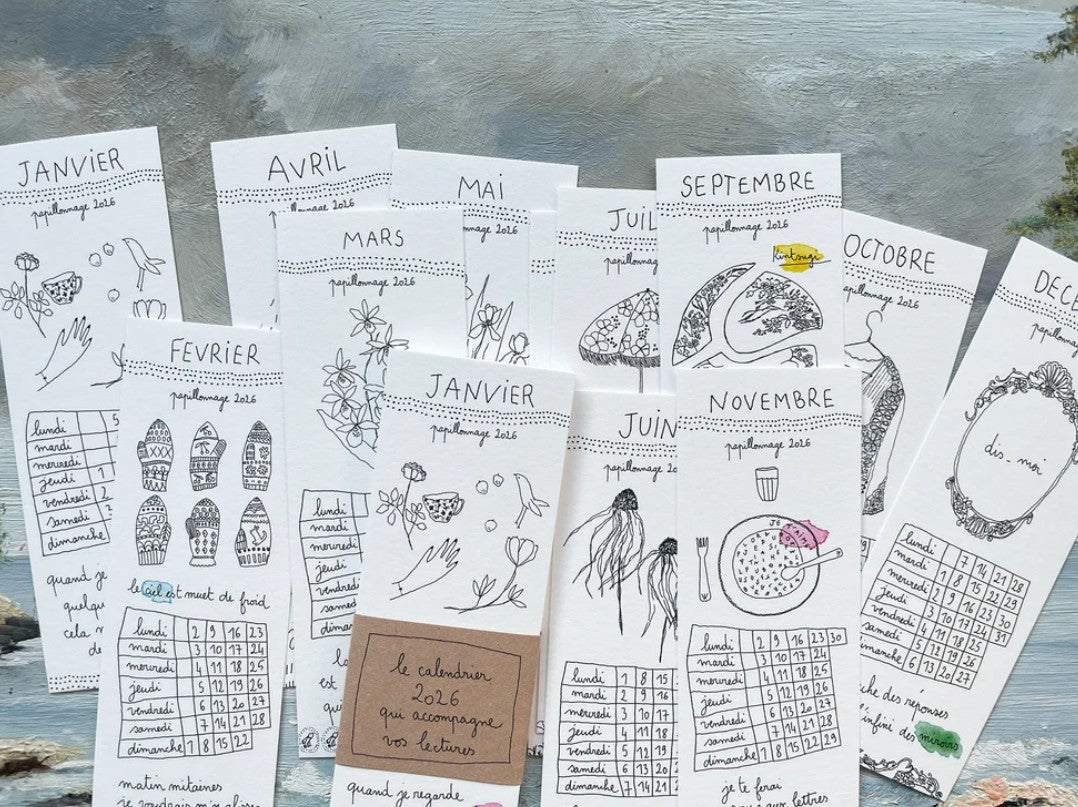 JANVIER
papillonnage 2026
lundi 5
mardi
mercredi
jeudi 1
vendredi 2
samedi
dimanche
quand je
cela
AVRIL
papillonnage 2026
MAI
2026
SEPTEMBRE
papillonnage 2026
Kintsugi
JUIL
papillon
OCTOBRE
papillonnage 2026
DECE
papillon
dis_moi
lundi 7 14 21 28
mardi 1 8 15 22 29
mercredi 2 9 16 23 30
jeudi 3 10 17 24 31
vendredi 4 11 18 25
samedi 5 12 19 26
dimanche 6 13 20 27
des réponses
l'infini des miroirs
MARS
papillonnage 2026
lundi
mardi
mercredi
jeudi
vendredi
samedi
dimanche
est
FEVRIER
papillonnage 2026
le ciel est muet de froid
lundi 2 9 16 23
mardi 3 10 17 24
mercredi 4 11 18 25
jeudi 5 12 19 26
vendredi 6 13 20 27
samedi 7 14 21 28
dimanche 1 8 15 22
matin mitaines
je voudrais
JANVIER
papillonnage 2026
le calendrier
2026
qui accompagne
vos lectures
quand je regarde
JUIN
papillonnage 2
lundi 1 8 15
mardi 2 9 16
mercredi 3 10 17
jeudi 4 11 18
vendredi 5 12 19
samedi 6 13 20
dimanche 7 14 21
NOVEMBRE
papillonnage 2026
JE T'AIME
lundi 2 9 16 23 30
mardi 3 10 17 24
mercredi 4 11 18 25
jeudi 5 12 19 26
vendredi 6 13 20 27
samedi 7 14 21 28
dimanche 1 8 15 22 29
je te ferai
aux lettres